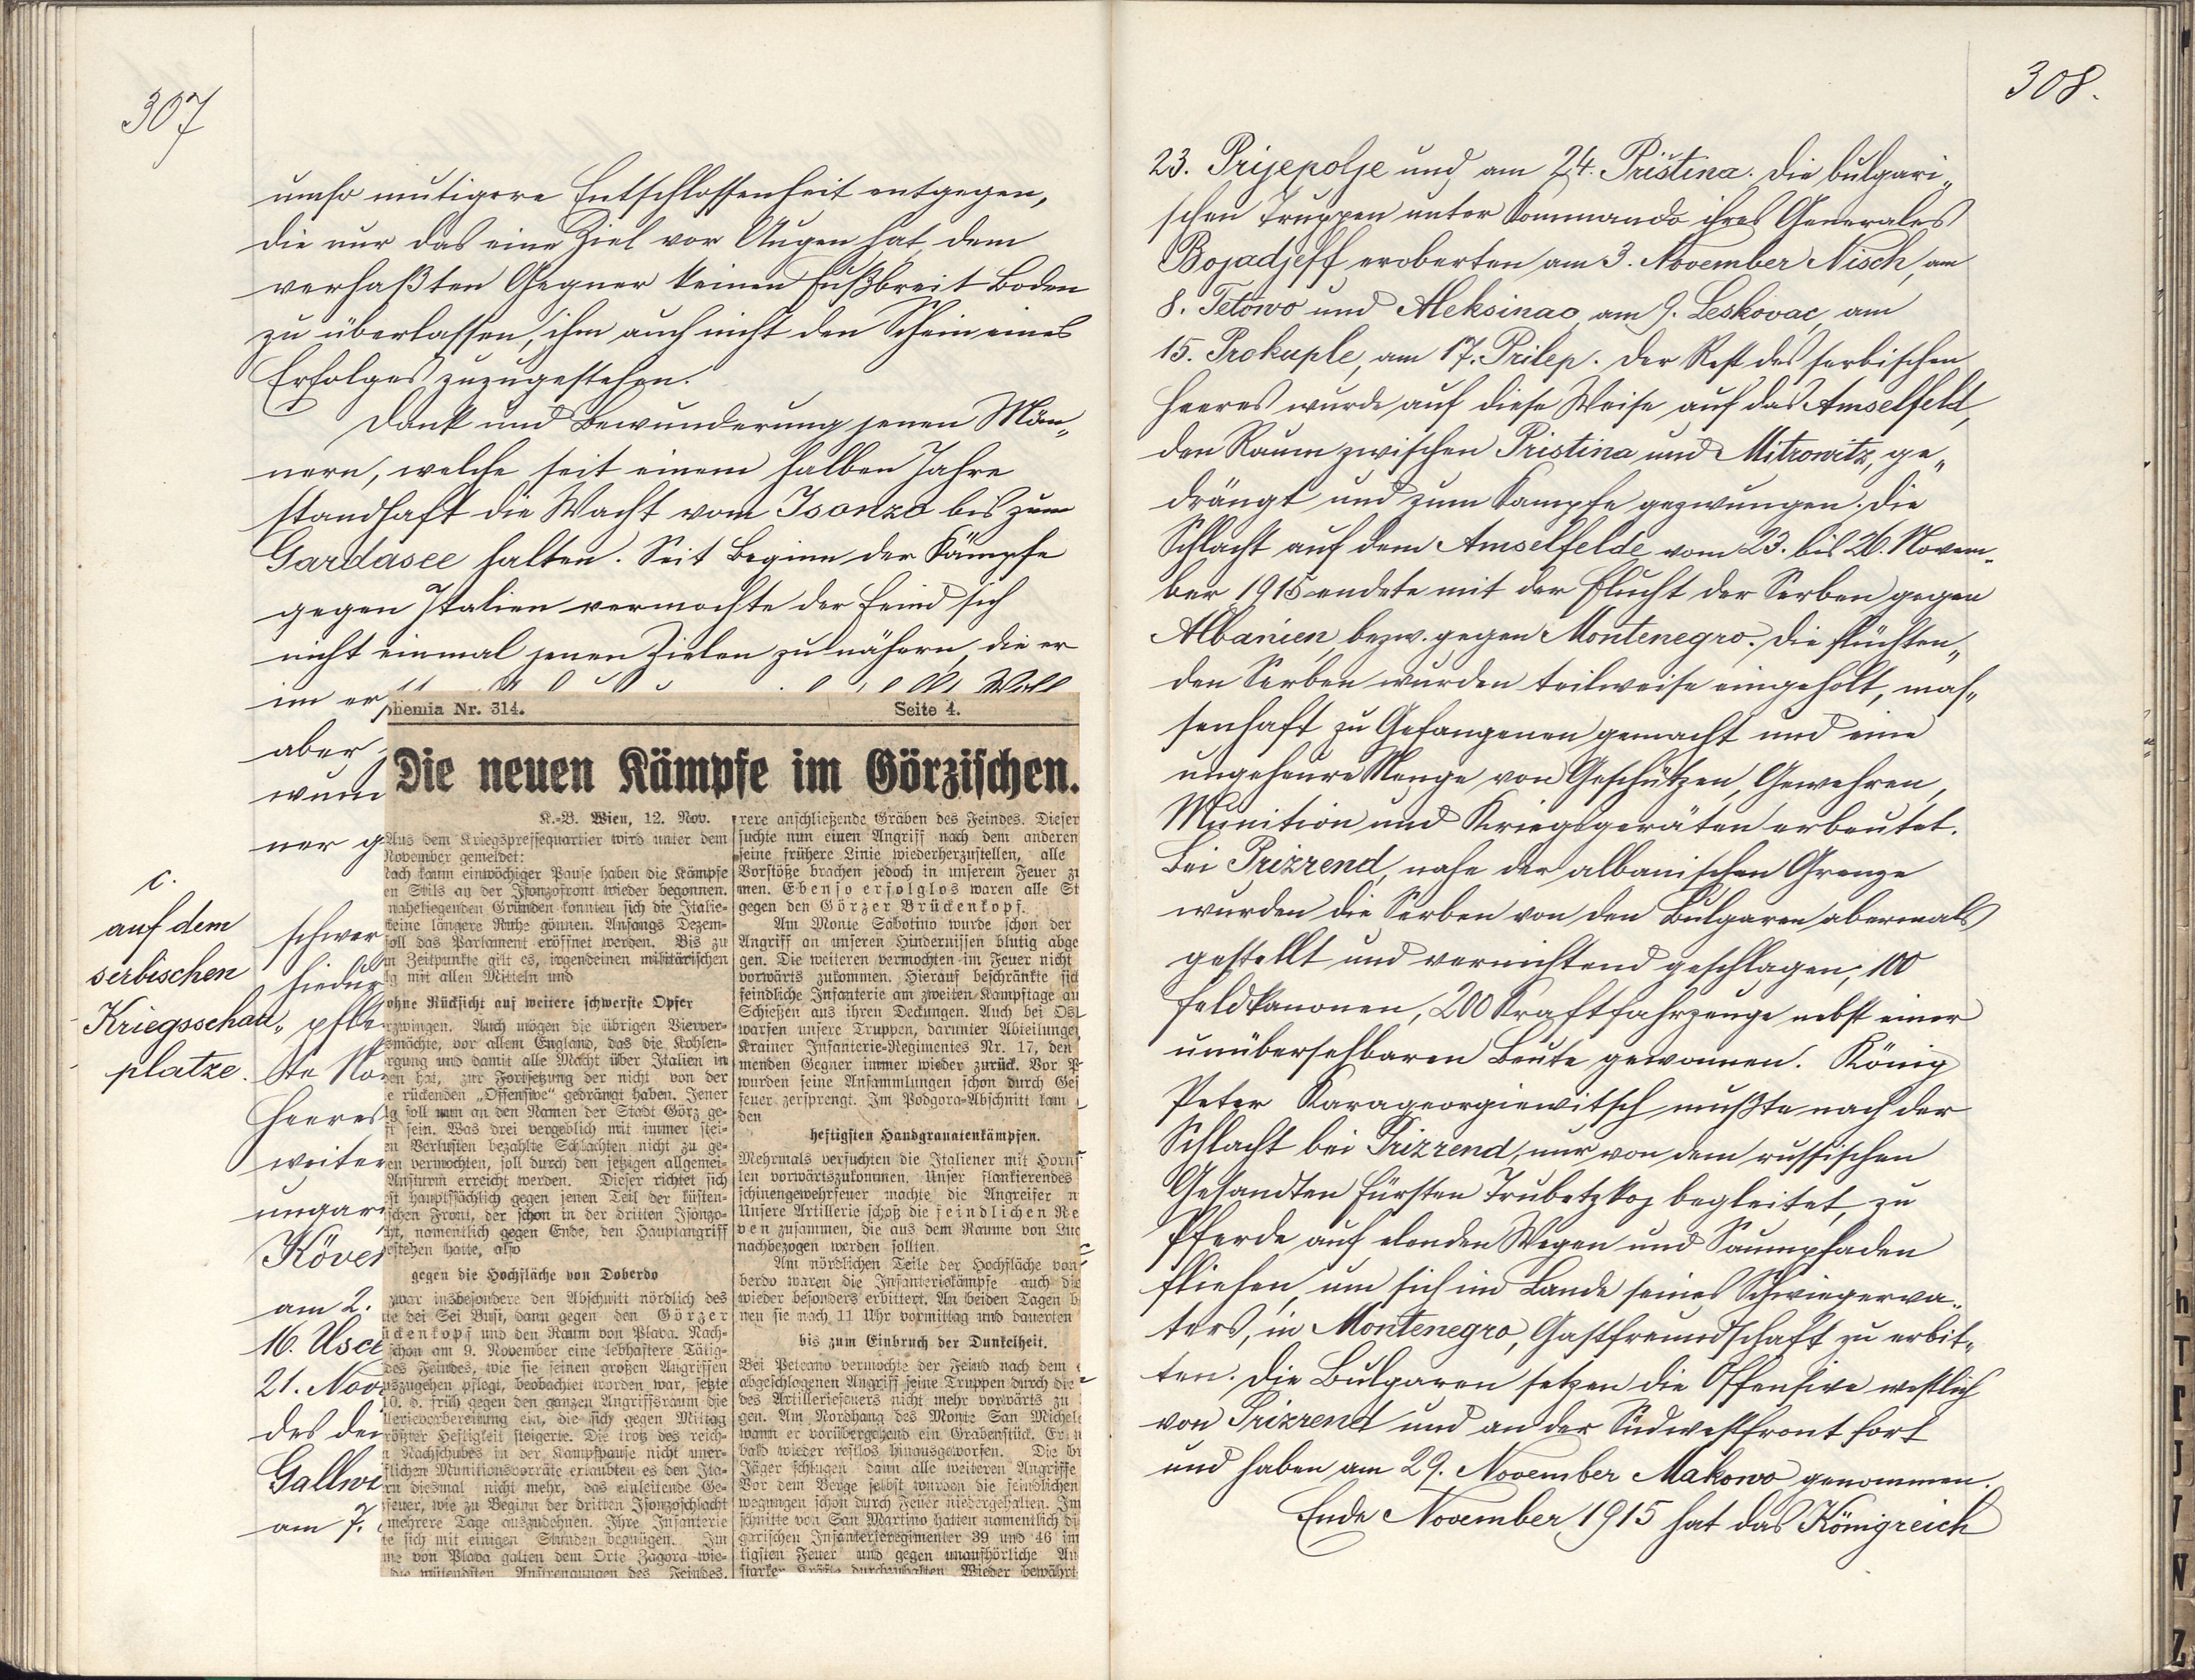 307
umso mutigere Entschlossenheit entgegen,
die nur das eine Ziel vor Augen hat, dem
verhaßten Gegner keinen Fußbreit Boden
zu überlassen, ihm auch nicht den Schein eines
Erfolges zuzugestehen.
Dank und Bewunderung jenen Män„
nern, welche seit einem halben Jahre
standhaft die Wacht vom Isonzo bis zum
Gardasee halten. Seit Beginn der Kämpfe
gegen Italien vermochte der Feind sich
nicht einmal jenen Zielen zu nähern, die er
im er
aber
wun
ner g
c.
auf dem
serbischen
Kriegsschau„
platze.
schwer
hiedur
pfle
ste No
Heeres
weiter
ungari
Köve
am 2.
16. Usce
21. Nov
des de
Gallwi
am 7.
hemia Nr. 314. Seite 4.
Die neuen Kämpfe im Görzischen.
K.-B. Wien, 12. Nov.
Aus dem Kriegspressequartier wird unter dem
November gemeldet:
Nach kaum einwöchiger Pause haben die Kämpfe
en Stils an der Isonzofront wieder begonnen.
naheliegenden Gründen konnten sich die Italie-
keine längere Ruhe gönnen. Anfangs Dezem-
soll das Parlament eröffnet werden. Bis zu
m Zeitpunkte gilt es, irgendeinen militärischen
lg mit allen Mitteln und
ohne Rücksicht auf weitere schwerste Opfer
rzwingen. Auch mögen die übrigen Vierver-
smächte, vor allem England, das die Kohlen-
rgung und damit alle Macht über Italien in
en hat, zur Fortsetzung der nicht von der
e rückenden „Offensive“ gedrängt haben. Jener
lg soll nun an den Namen der Stadt Görz ge-
ft sein. Was drei vergeblich mit immer stei-
en Verlusten bezahlte Schlachten nicht zu ge-
en vermochten, soll durch den jetzigen allgemei-
Ansturm erreicht werden. Dieser richtet sich
st hauptsächlich gegen jenen Teil der küsten-
schen Front, der schon in der dritten Isonzo-
ht, namentlich gegen Ende, den Hauptangriff
estehen hatte, also
gegen die Hochfläche von Doberdo
zwar insbesondere den Abschnitt nördlich des
te dei Sei Busi, dann gegen den Görzer
ückenkopf und den Raum von Plava. Nach-
schon am 9. November eine lebhaftere Tätig-
des Feindes, wie sie seinen großen Angriffen
uszugehen pflegt, beobachtet worden war, setzte
10. d. früh gegen den ganzen Angriffsraum die
llerievorbereitung ein, die sich gegen Mittag
rößter Heftigkeit steigerte. Die trotz des reich-
n Nachschubes in der Kampfpause nicht uner-
flichen Munitionsvorräte erlaubten es den Ita-
rn diesmal nicht mehr, das einleitende Ge-
feuer, wie zu Beginn der dritten Isonzoschlacht
mehrere Tage auszudehnen. Ihre Infanterie
te sich mit einigen Stunden begnügen. Im
me von Plava galten dem Orte Zagora wie-
die wütendsten Anstrengungen des Feindes.
rere anschließende Gräben des Feindes. Dieser
suchte nun einen Angriff nach dem anderen
seine frühere Linie wiederherzustellen, alle
Vorstöße brachen jedoch in unserem Feuer zu
men. Ebenso erfolglos waren alle St
gegen den Görzer Brückenkopf.
Am Monte Sabotino wurde schon der
Angriff an unseren Hindernissen blutig abge
gen. Die weiteren vermochten im Feuer nicht
vorwärts zukommen. Hierauf beschränkte sich
feindliche Infanterie am zweiten Kampftage au
Schießen aus ihren Deckungen. Auch bei Os
warfen unsere Truppen, darunter Abteilunge
Krainer Infanterie-Regimentes Nr. 17, den
menden Gegner immer wieder zurück. Vor P
wurden seine Ansammlungen schon durch Ges
feuer zersprengt. Im Podgora-Abschnitt kam
den
heftigsten Handgranatenkämpfen.
Mehrmals versuchten die Italiener mit Horns
len vorwärtszukommen. Unser flankierendes
schinengewehrfeuer machte die Angreifer n
Unsere Artillerie schoß die feindlichen Re
ven zusammen, die aus dem Raume von Luc
nachbezogen werden sollten.
Am nördlichen Teile der Hochfläche von
berdo waren die Infanteriekämpfe auch die
wieder besonders erbittert. An beiden Tagen b
nen sie nach 11 Uhr vormittag und dauerten
bis zum Einbruch der Dunkelheit.
Bei Peteano vermochte der Feind nach dem
abgeschlagenen Angriff seine Truppen durch die
des Artilleriefeuers nicht mehr vorwärts zu
gen. Am Nordhang des Monte San Michele
wann er vorübergehend ein Grabenstück. Er
bald wieder restlos hinausgeworfen. Die
Jäger schlugen dann alle weiteren Angriffe
Vor dem Berge selbst wurden die feindlichen
wegungen schon durch Feuer niedergehalten. Im
schnitte von San Martino hatten namentlich di
garischen Infanterieregimenter 39 und 46 im
tigsten Feuer und gegen unaufhörliche An
starker Kräfte durchzuhalten. Wieder bewährt
308.
23. Prijepolje und am 24. Priština. Die bulgari„
schen Truppen unter Kommando ihres Generales
Bojadjeff eroberten am 3. November Nisch, am
8. Tetowo und Aleksinac, am 9. Leskovac, am
15. Prokuple, am 17. Prilep. Der Rest des serbischen
Heeres wurde auf diese Weise auf das Amselfeld,
den Raum zwischen Pristina und Mitrowitz, ge„
drängt und zum Kampfe gezwungen. Die
Schlacht auf dem Amselfelde vom 23. bis 26. Novem„
ber 1915 endete mit der Flucht der Serben gegen
Albanien bezw. gegen Montenegro. Die flüchten„
den Serben wurden teilweise eingeholt, mas„
senhaft zu Gefangenen gemacht und eine
ungeheure Menge von Geschützen, Gewehren,
Munition und Kriegsgeräten erbeutet.
Bei Prizrend, nahe der albanischen Grenze
wurden die Serben von den Bulgaren abermals
gestellt und vernichtend geschlagen; 100
Feldkanonen, 200 Kraftfahrzeuge nebst einer
unübersehbaren Beute gewonnen. König
Peter Karageorgiewitsch mußte nach der
Schlacht bei Prizrend, nur von dem russischen
Gesandten Fürsten Trubetzkoj begleitet, zu
Pferde auf elenden Wegen und Saumpfaden
fliehen, um sich im Lande seines Schwiegerva„
ters, in Montenegro, Gastfreundschaft zu erbit„
ten. Die Bulgaren setzen die Offensive westlich
von Prizrend und an der Südwestfront fort
und haben am 29. November Makowo genommen.
Ende November 1915 hat das Königreich